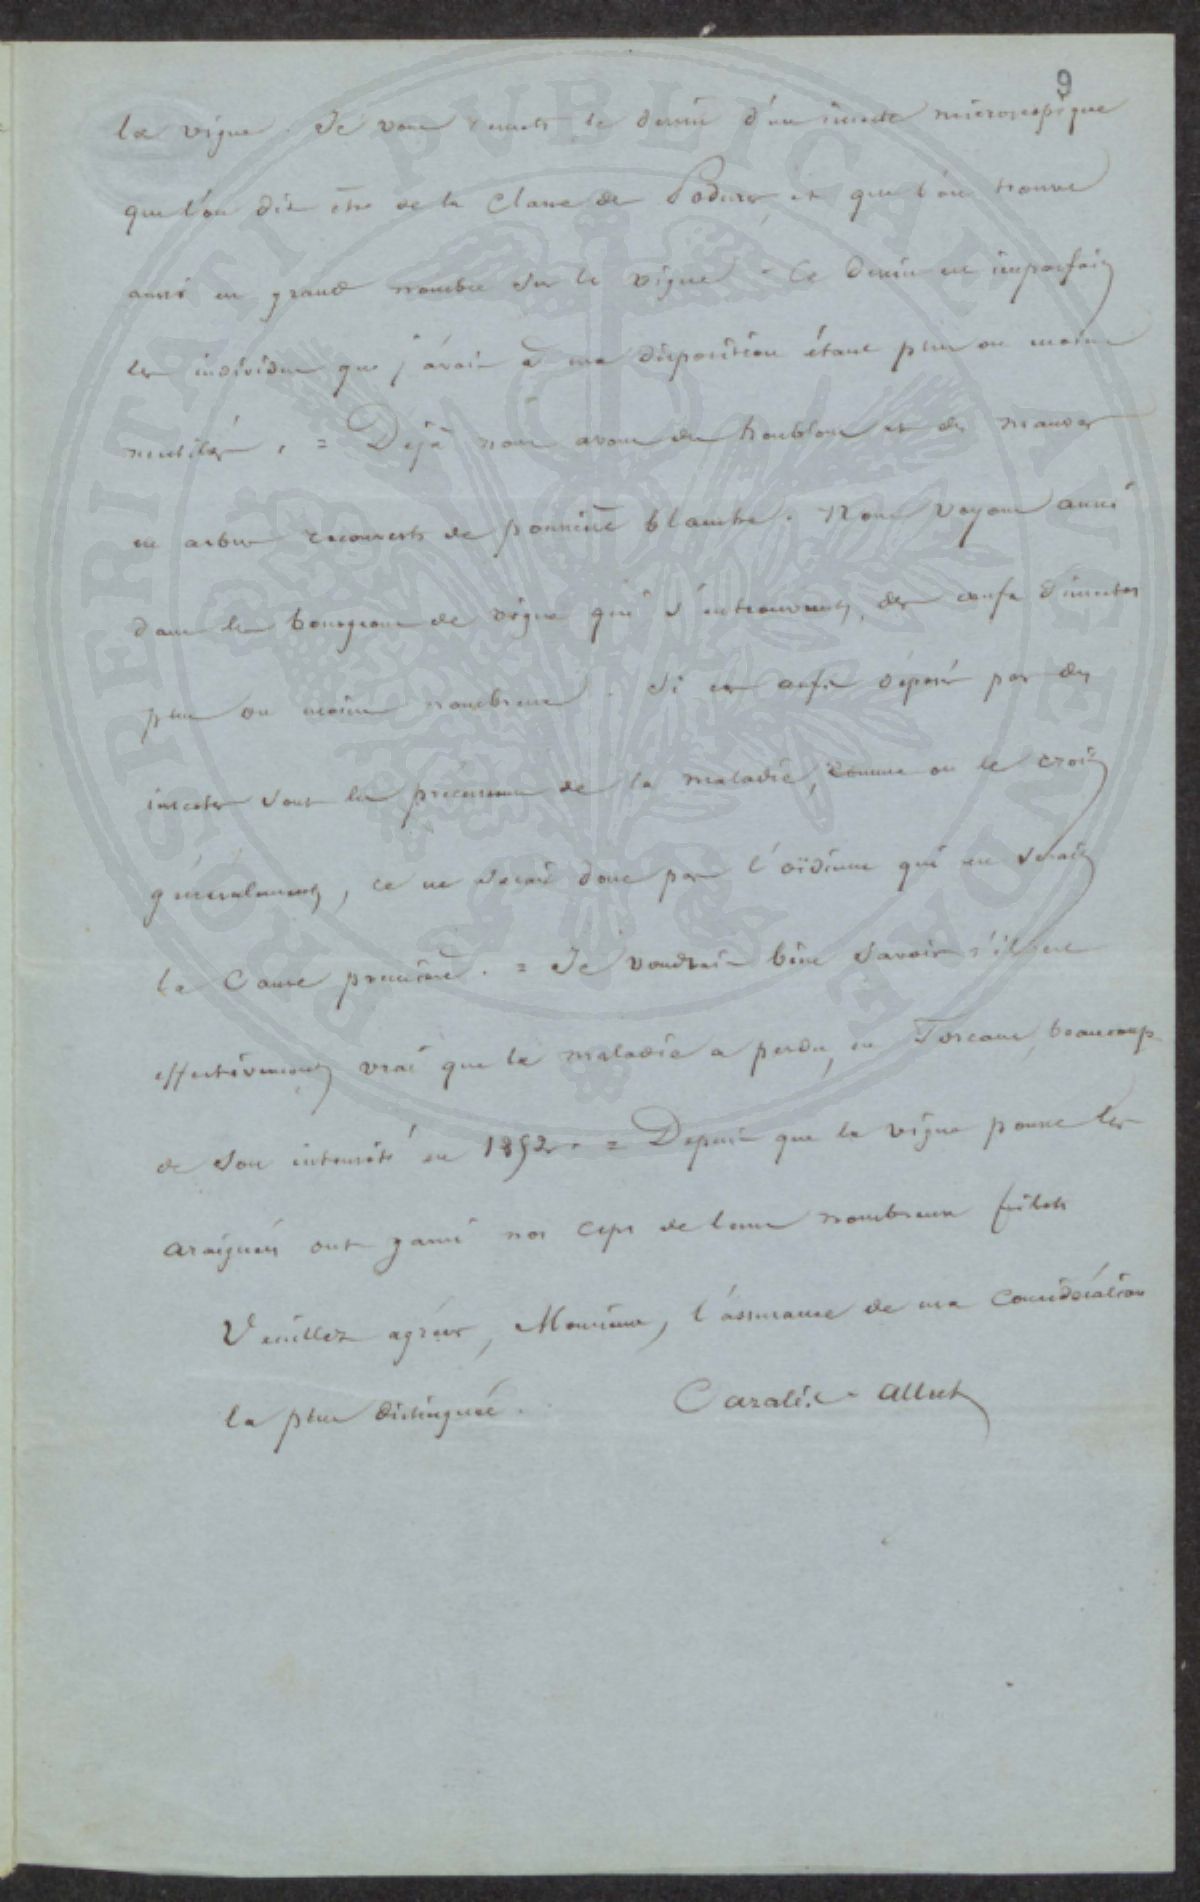 9
la vigne. Je vous remets le dessin d'un insecte microscopique
que l'on dit être de la classe de Podures, et que l'on trouve
aussi en grand nombre sur la vigne. Ce dessin est imparfait
les individus que j'avais à ma disposition étant plus ou moins
mutilés. = Déjà nous avons du houblon et des mauves
en arbre recouverts de poussière blanche. Nous voyons aussi
dans les bourgeons de vigne qui s'entrouvrent, des œufs d'insectes
plus ou moins nombreux. Si ces œufs déposés par des
insectes sont les précurseurs de la maladie, comme on le croit
généralement, ce ne serait donc pas l'oïdium qui en serait
la cause première. = Je voudrais bien savoir s'il est
effectivement vrai que la maladie a perdu, en Toscane, beaucoup
de son intensité en 1852. = Depuis que la vigne pousse les
araignées ont garni nos ceps de leurs nombreux filets
Veuillez agréer, Monsieur, l'assurance de ma considération
la plus distinguée. Cazalis-Allut
PROSPERITATI PUBLICAE